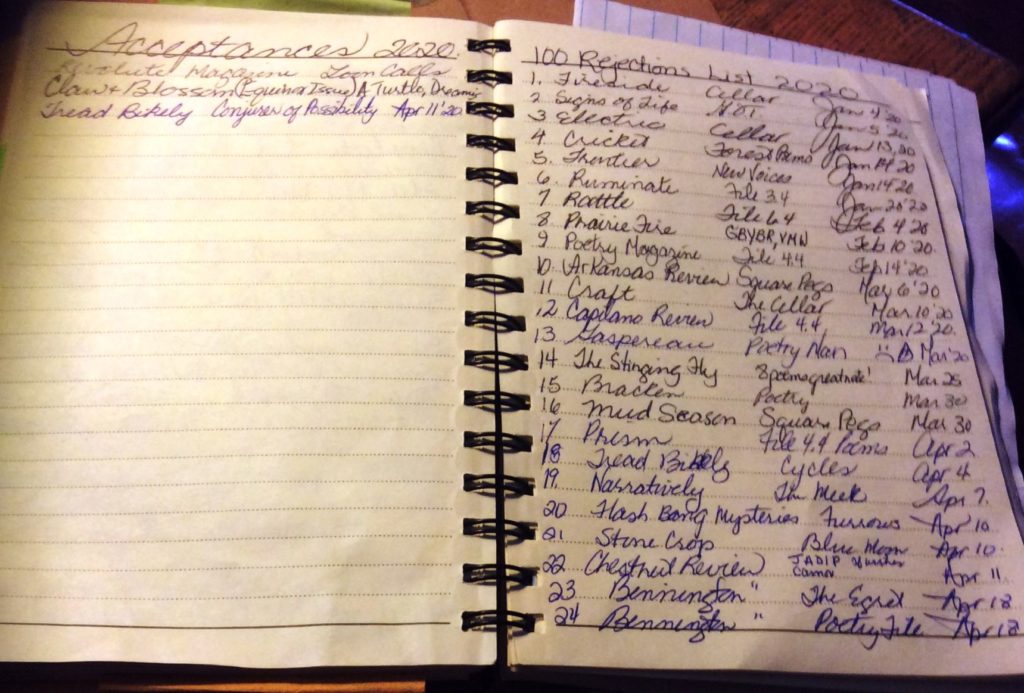 Acceptances 2020
Magazine Loon Calls
Claw & Blossom (Equinox Issue) A Turtle, Dreaming
Tread Bikely Conjurer of Possibility Apr 11 '20
100 Rejections List 2020
1. Fireside Cellar Jan 4 '20
2 Signs of Life HOT Jan 5 '20
3 Electric Cellar Jan 13, 20
4 Cricket Forest Poems Jan 14 '20
5. Frontier New Voices Jan 14 '20
6. Ruminate File 3.4 Jan 20 '20
7 Rattle File 6.4 Feb 4 '20
8 Prairie Fire GBYBR, VMW Feb 10 '20
9 Poetry Magazine File 4.4 Feb 14 '20
10. Arkansas Review Square Pegs May 6 '20
11 Craft The Cellar Mar 10 '20
12 Capilano Review File 4.4, Mar 12 '20.
13. Gaspereau Poetry Man Mar '20
14 The Stinging Fly 8 poems great note! Mar 25
15 Bracken Poetry Mar 30
16 Mud Season Square Pegs Mar 30
17 Prism File 4.4 Poems Apr 2
18 Tread Bikely Cycles Apr 4
19. Narratively The Meek Apr 7.
20 Flash Bang Mysteries Furrows Apr 10
21 Stone Crop Blue Moon Apr 10.
22 Chestnut Review JADIP Apr 11
23 Bennington " The Egret Apr 18
24 Bennington " Poetry File Apr 18